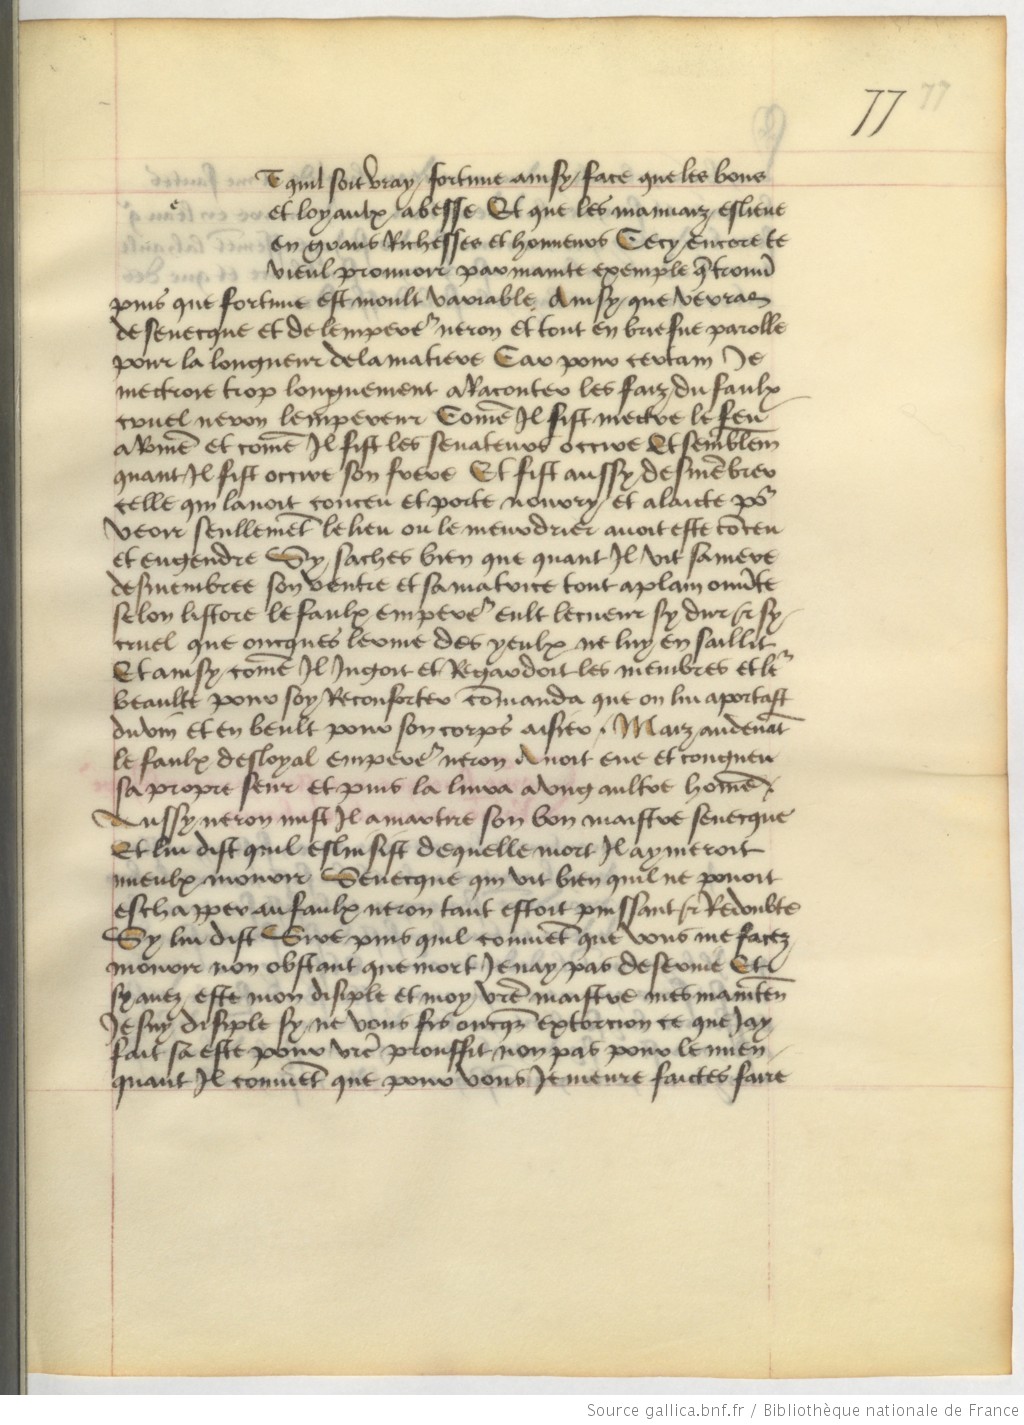 77 77
T quil soit vray fortune ainsy face que les bons
e
et loyaulx abesse Et que les mauuaiz eslieue
en grans Richesses et honneurs Cecy encore te
vieul prouuoir par mainte exemple
puis que fortune est moult variable Ainsy que verras
de senecque et de lemperer neron et tout en briefue parolle
pour la longueur de la matiere Car pour certain Je
mectroie trop longuement a Raconter les faiz du faulx
cruel neron lempereur Comē Il fist mectre le feu
a Romē et comē Il fist les senateurs occire Et semblem̄
quant Il fist occire son frere Et fist aussy desmēbrer
celle qui lauoit conceu et porte nourry et alaicte po᷑
veoir seullemēt le lieu ou le meurdrier auoit este cōceu
et engendre Sy saches bien que quant Il vit sa mere
desmembree son ventre et sa matrice tout a plain
selon listore le faulx emperer eult le cueur sy dur et sy
cruel que oncques lerme des yeulx ne luy en saillit
Et ainsy comē Il Jugoit et Regardoit les membres et le᷑
beaulte pour soy Reconforter cōmanda que on lui aportast
du vin et en beult pour son corps aisier Maiz auderāt
le faulx desloyal emperer neron Auoit eue et congneu
sa propre seur et puis la liura a vng aultre homē
Aussy neron mist Il a martire son bon maistre senecque
Et lui dist quil eslisist de quelle mort Il aymeroit
mieulx mourir Senecque qui vit bien quil ne pouoit
eschapper au faulx neron tant estoit puissant et Redoubte
Sy lui dist Sire puis quil conuiēt que vous me facez
mourir non obstant que mort Je nay pas deseruie Et
sy auez este mon disiple et moy vr̄e maistre mes maintēn
Je suy disiple sy ne vous fis oncq̄ extorcion ce que Jay
fait sa este pour vr̄e prouffit non pas pour le mien
quant Il conuiēt que pour vous Je meure faictes faire
Source gallica.bnf.fr / Bibliothèque nationale de France